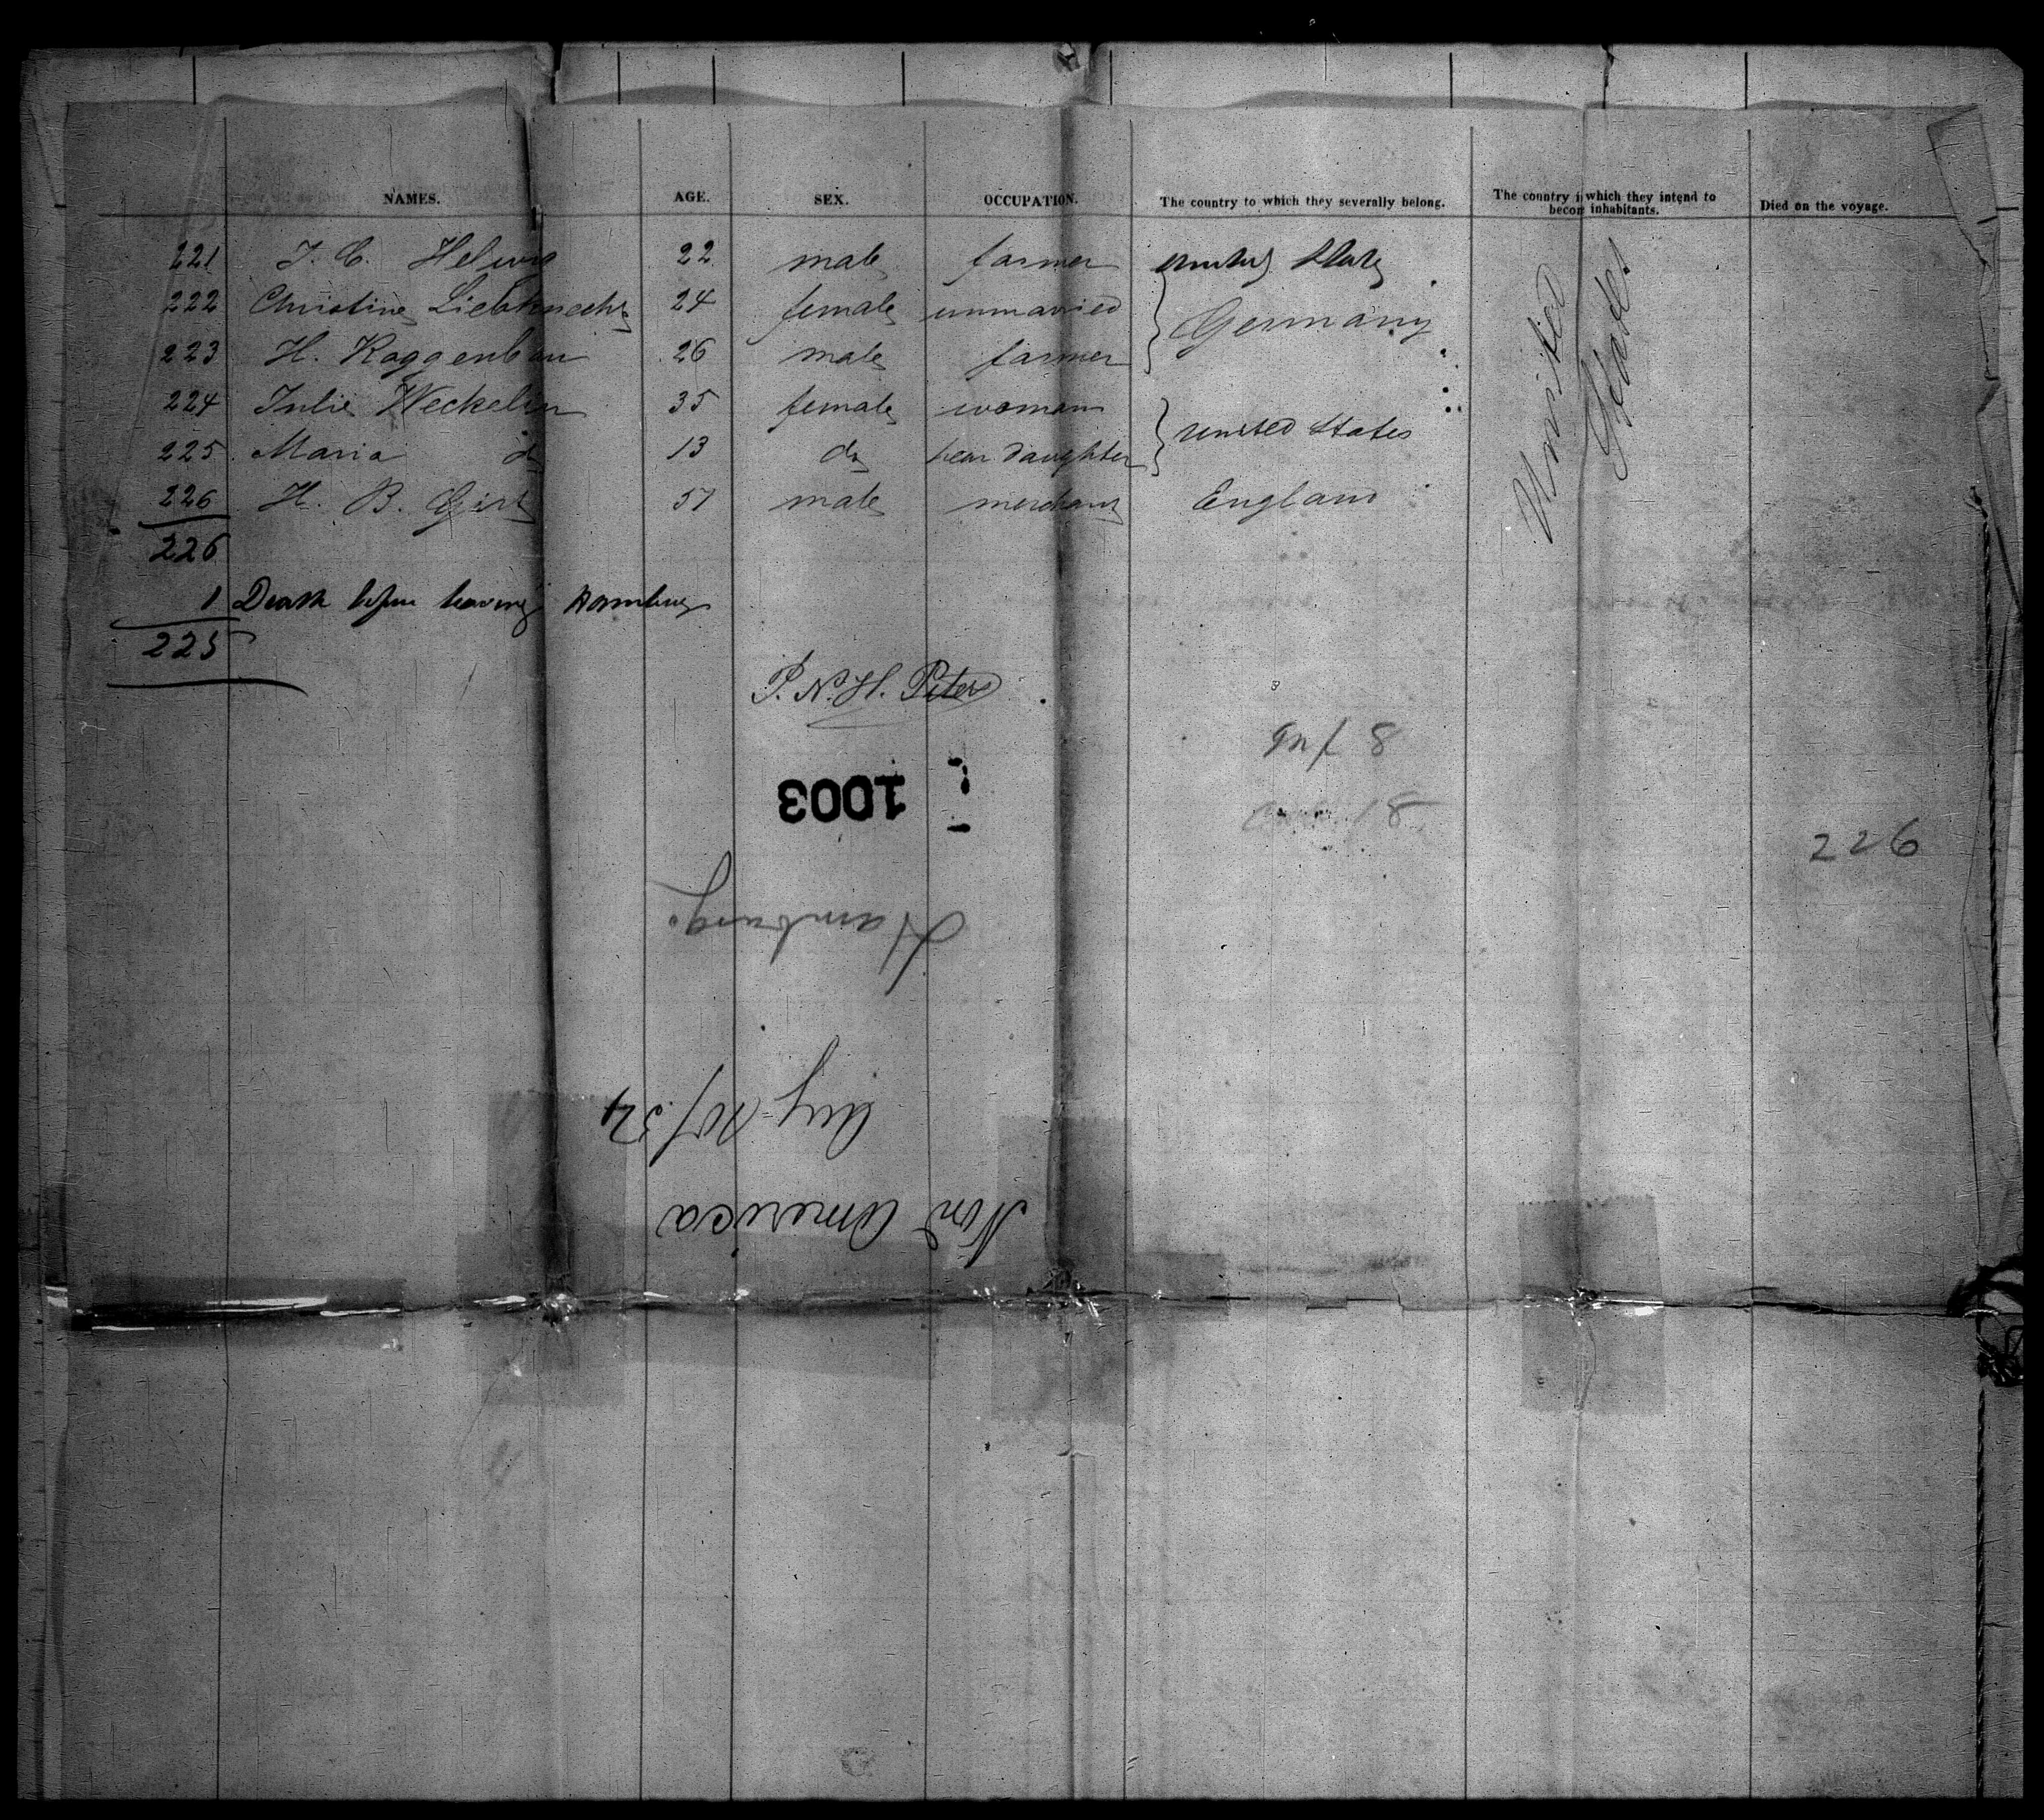 NAMES. AGE. SEX. OCCUPATION. The country to which they severally belong. The country in which they intend to become inhabitants. Died on the voyage.
221 J. C. Helwig 22 male farmer United States
222 Christine Liebknecht 24 female unmarried Germany
223 H. Roggenbau 26 male farmer
224 Julie Weckelin 35 female woman
225 Maria do 13 do hear daughter United States
226 H. B. 57 male merchant England
United States
226
1 Death before leaving Hamburg
225
P. N. H. Peters
Inf 8
1003
18
226
Hamburg.
Aug 10/54
Nord America